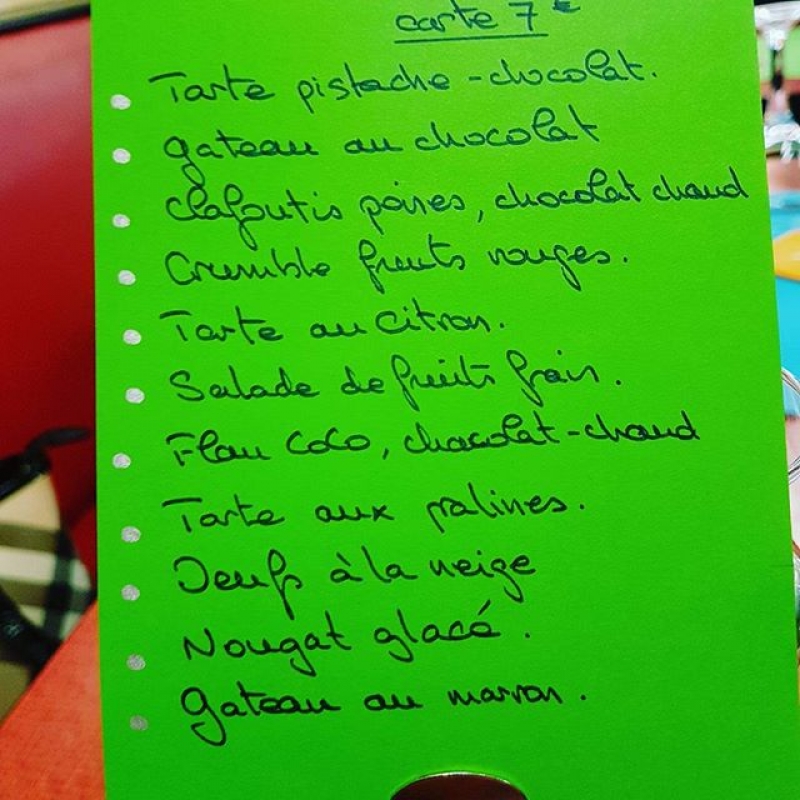 carte 7€
Tarte pistache-chocolat.
gateau au chocolat
clafoutis poires, chocolat chaud
Crumble fruits rouges.
Tarte au citron.
Salade de fruits frais.
Flan coco, chocolat-chaud
Tarte aux pralines.
Oeufs à la neige
Nougat glacé.
Gateau au marron.